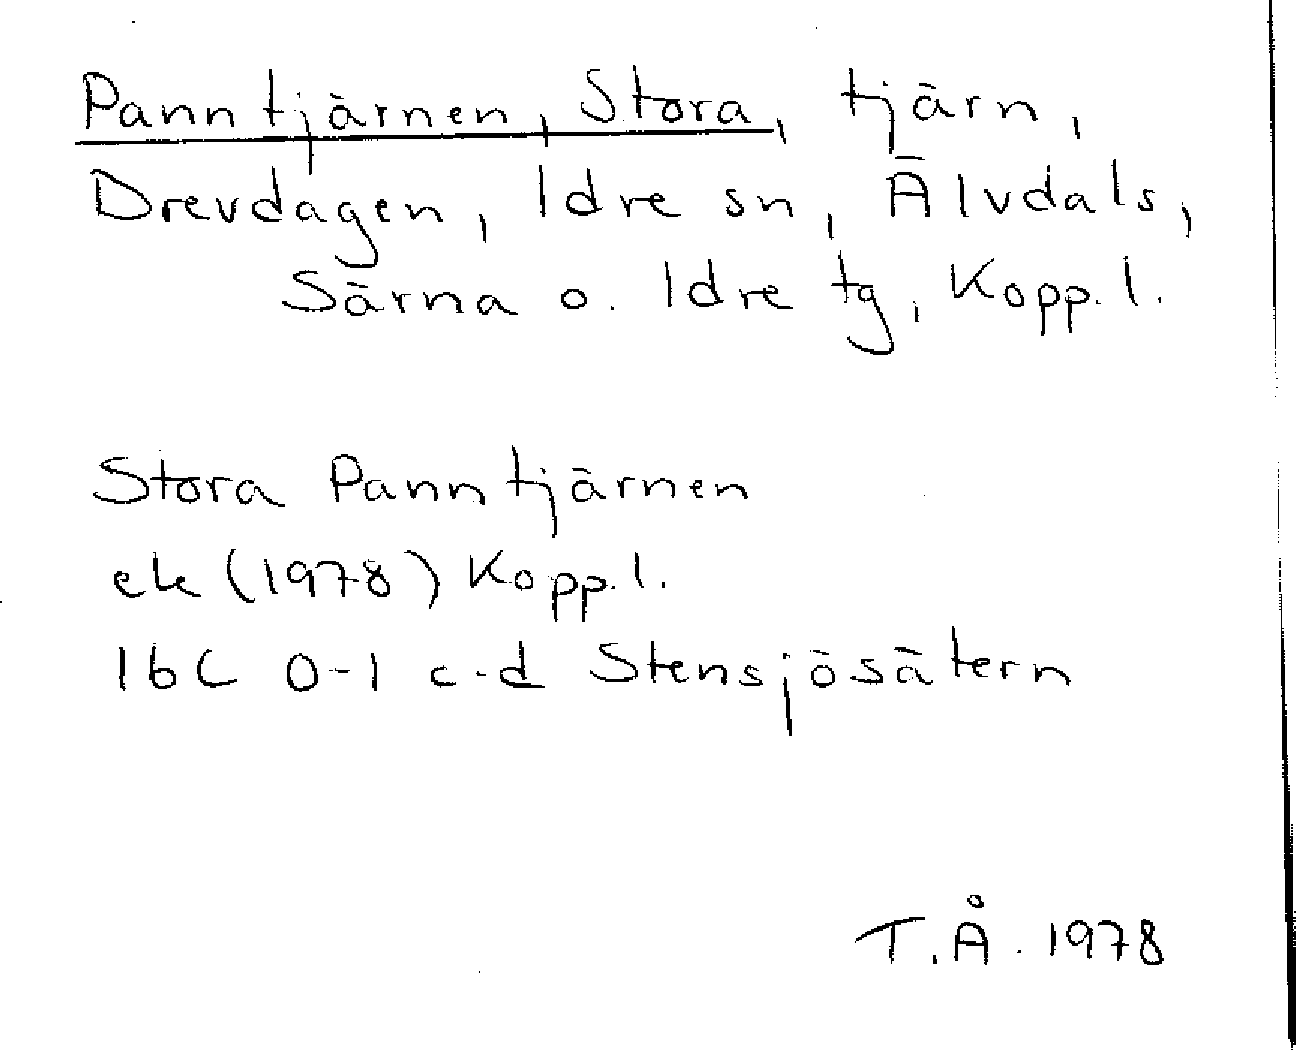 Panntjärnen, Stora, tjärn,
Drevdagen, Idre sn, Älvdals,
Särna o. Idre tg, Kopp. l.
Stora Panntjärnen
ek (1978) Kopp. l.
16C 0-1 c-d Stensjösätern
T.Å. 1978